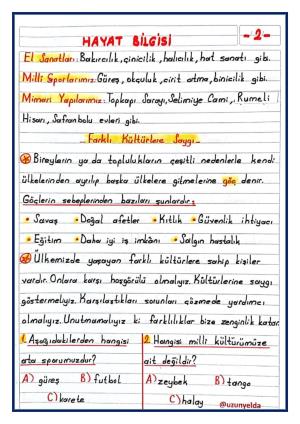 HAYAT BİLGİSİ
-2-
El Sanatları: Bakırcılık, çinicilik, halıcılık, hat sanatı gibi.
Milli Sporlarımız: Güreş, okçuluk, cirit atma, binicilik gibi.
Mimari Yapılarımız: Topkapı Sarayı, Selimiye Cami, Rumeli
Hisarı, Safranbolu evleri gibi.
Farklı Kültürlere Saygı
Bireylerin ya da toplulukların çeşitli nedenlerle kendi
ülkelerinden ayrılıp başka ülkelere gitmelerine göç denir.
Göçlerin sebeplerinden bazıları şunlardır;
• Savaş • Doğal afetler • Kıtlık • Güvenlik ihtiyacı
• Eğitim • Daha iyi iş imkânı • Salgın hastalık
Ülkemizde yaşayan farklı kültürlere sahip kişiler
vardır. Onlara karşı hoşgörülü olmalıyız. Kültürlerine saygı
göstermeliyiz. Karşılaştıkları sorunları çözmede yardımcı
olmalıyız. Unutmamalıyız ki farklılıklar bize zenginlik katar.
1. Aşağıdakilerden hangisi
ata sporumuzdur?
A) güreş B) futbol
C) karete
2. Hangisi milli kültürümüze
ait değildir?
A) zeybek B) tango
C) halay
@uzunyelda